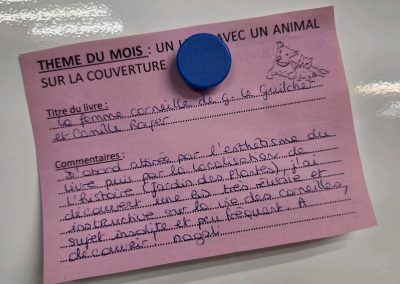 THEME DU MOIS : UN AVEC UN ANIMAL
SUR LA COUVERTURE
Titre du livre :
La femme corneille de G. le Guilcher
et Camille Royer
Commentaires :
D'abord attirée par l'esthétisme du
livre puis par la localisation de
l'histoire (Jardin des Plantes), j'ai
découvert une BD très réussie et
instructive sur la vie des corneilles,
sujet insolite et peu fréquent. A
découvrir